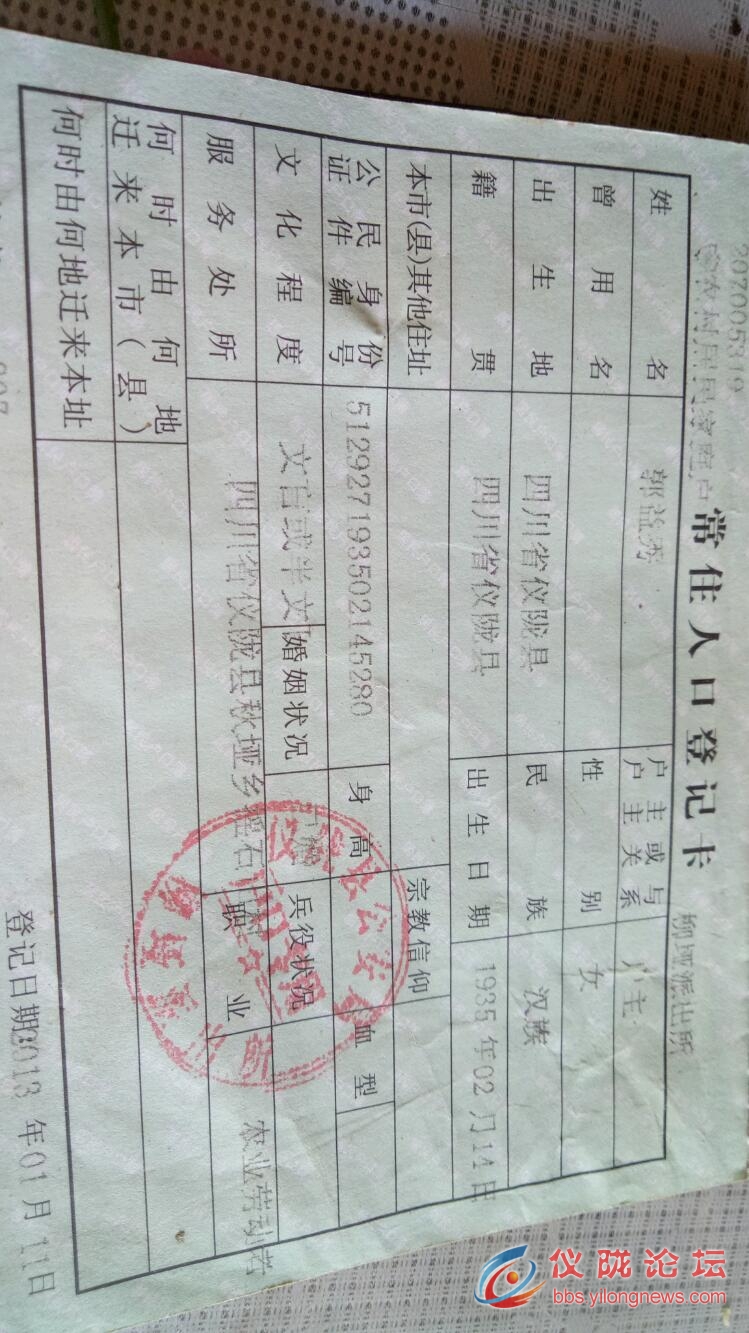 207005319
农村居民家庭户
常住人口登记卡
柳垭派出所
姓名 郭益秀 户主或与户主关系 户主
曾用名 性别 女
出生地 四川省仪陇县 民族 汉族
籍贯 四川省仪陇县 出生日期 1935年02月14日
本市(县)其他住址 宗教信仰
公民身份证件编号 512927193502145280 身高 血型
文化程度 文盲或半文 婚姻状况 兵役状况
服务处所 四川省仪陇县秋垭乡 职业 农业劳动者
何时由何地迁来本市(县)
何时由何地迁来本址
登记日期 2013年01月11日
仪陇论坛
bbs.yilongnews.com